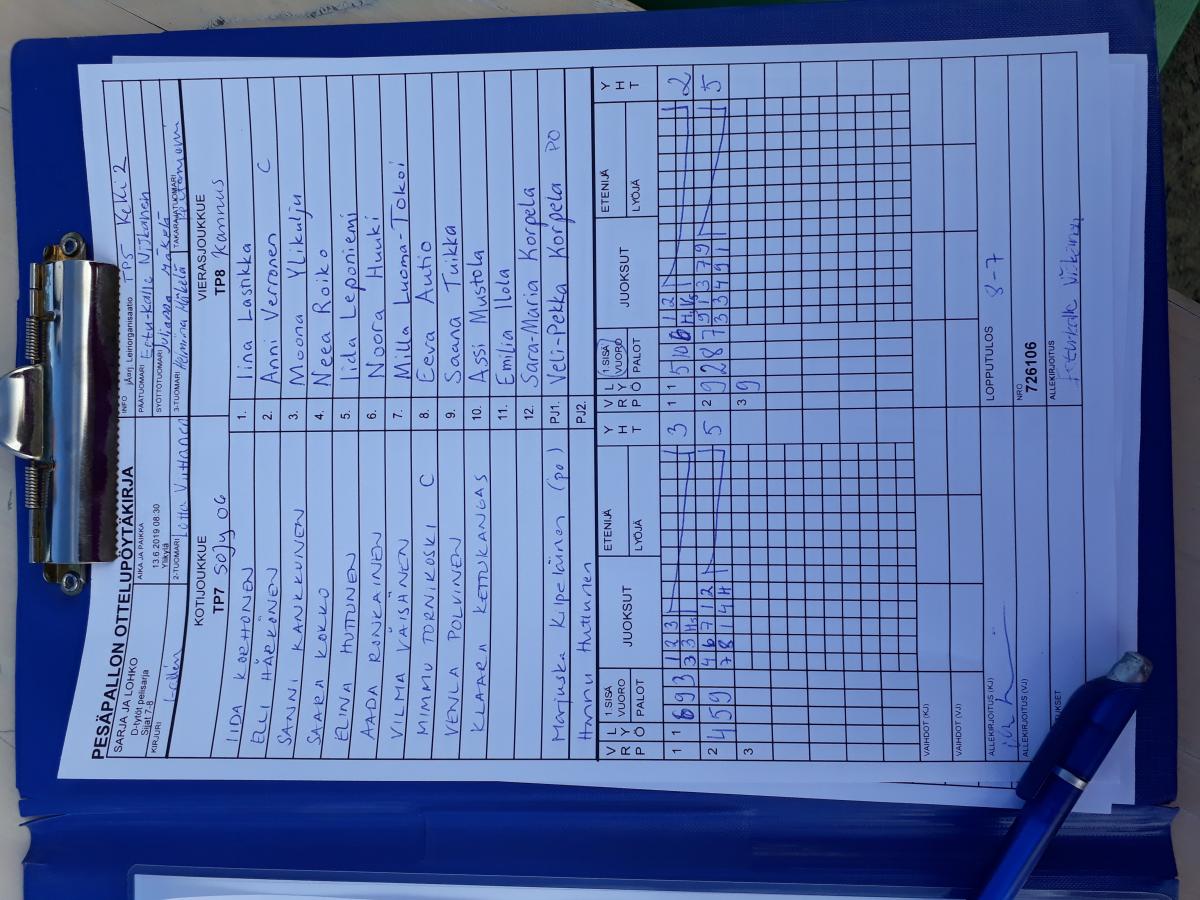 PESÄPALLON OTTELUPÖYTÄKIRJA
SARJA JA LOHKO
D-tytöt pelisarja
Sijat 7-8
AIKA JA PAIKKA
13.6.2019 08:30
Ylikylä
INFO
Leiriorganisaatio TPS Keki 2
PÄÄTUOMARI Eetu-Kalle
SYÖTTÖTUOMARI Juliaana Mäkelä
KIRJURI
2-TUOMARI Lotta
3-TUOMARI
TAKARAJATUOMARI
KOTIJOUKKUE
TP7 SoJy 06
VIERASJOUKKUE
TP8 Kannus
IIDA KORHONEN 1. Iina Lastikka
ELLI HÄRKÖNEN 2. Anni Verronen C
SANNI KANKKUNEN 3. Moona Ylikulju
SAARA KOKKO 4. Neea Roiko
ELINA HUTTUNEN 5. Iida Leponiemi
AADA RONKAINEN 6. Noora Huuki
VILMA VÄISÄNEN 7. Milla Luoma-Tokoi
MIMMU TORNIKOSKI C 8. Eeva Autio
VENLA POLVINEN 9. Saana Tuikka
KLAARA KETTUKANGAS 10. Assi Mustola
11. Emilia Ilola
12. Sara-Maria Korpela
Marjuska Kilpeläinen (po) PJ1. Veli-Pekka Korpela PO
Hannu Huttunen PJ2.
V R P L Y Ö 1.SISÄ VUORO PALOT JUOKSUT ETENIJÄ LYÖJÄ Y H T
V R P L Y Ö 1.SISÄ VUORO PALOT JUOKSUT ETENIJÄ LYÖJÄ Y H T
1 1 6 9 3 1 2 3 3
3 3
1 1 5 10 6 1 2 2
2 4 5 9 4 6 7 1 2 5
7 8 1 4 H
2 9 2 8 7 9 1 3 7 9 5
7 3 3 4 9 1
3
3 9
VAIHDOT (KJ)
VAIHDOT (VJ)
ALLEKIRJOITUS (KJ)
LOPPUTULOS 8-7
ALLEKIRJOITUS (VJ)
NRO
726106
ALLEKIRJOITUS